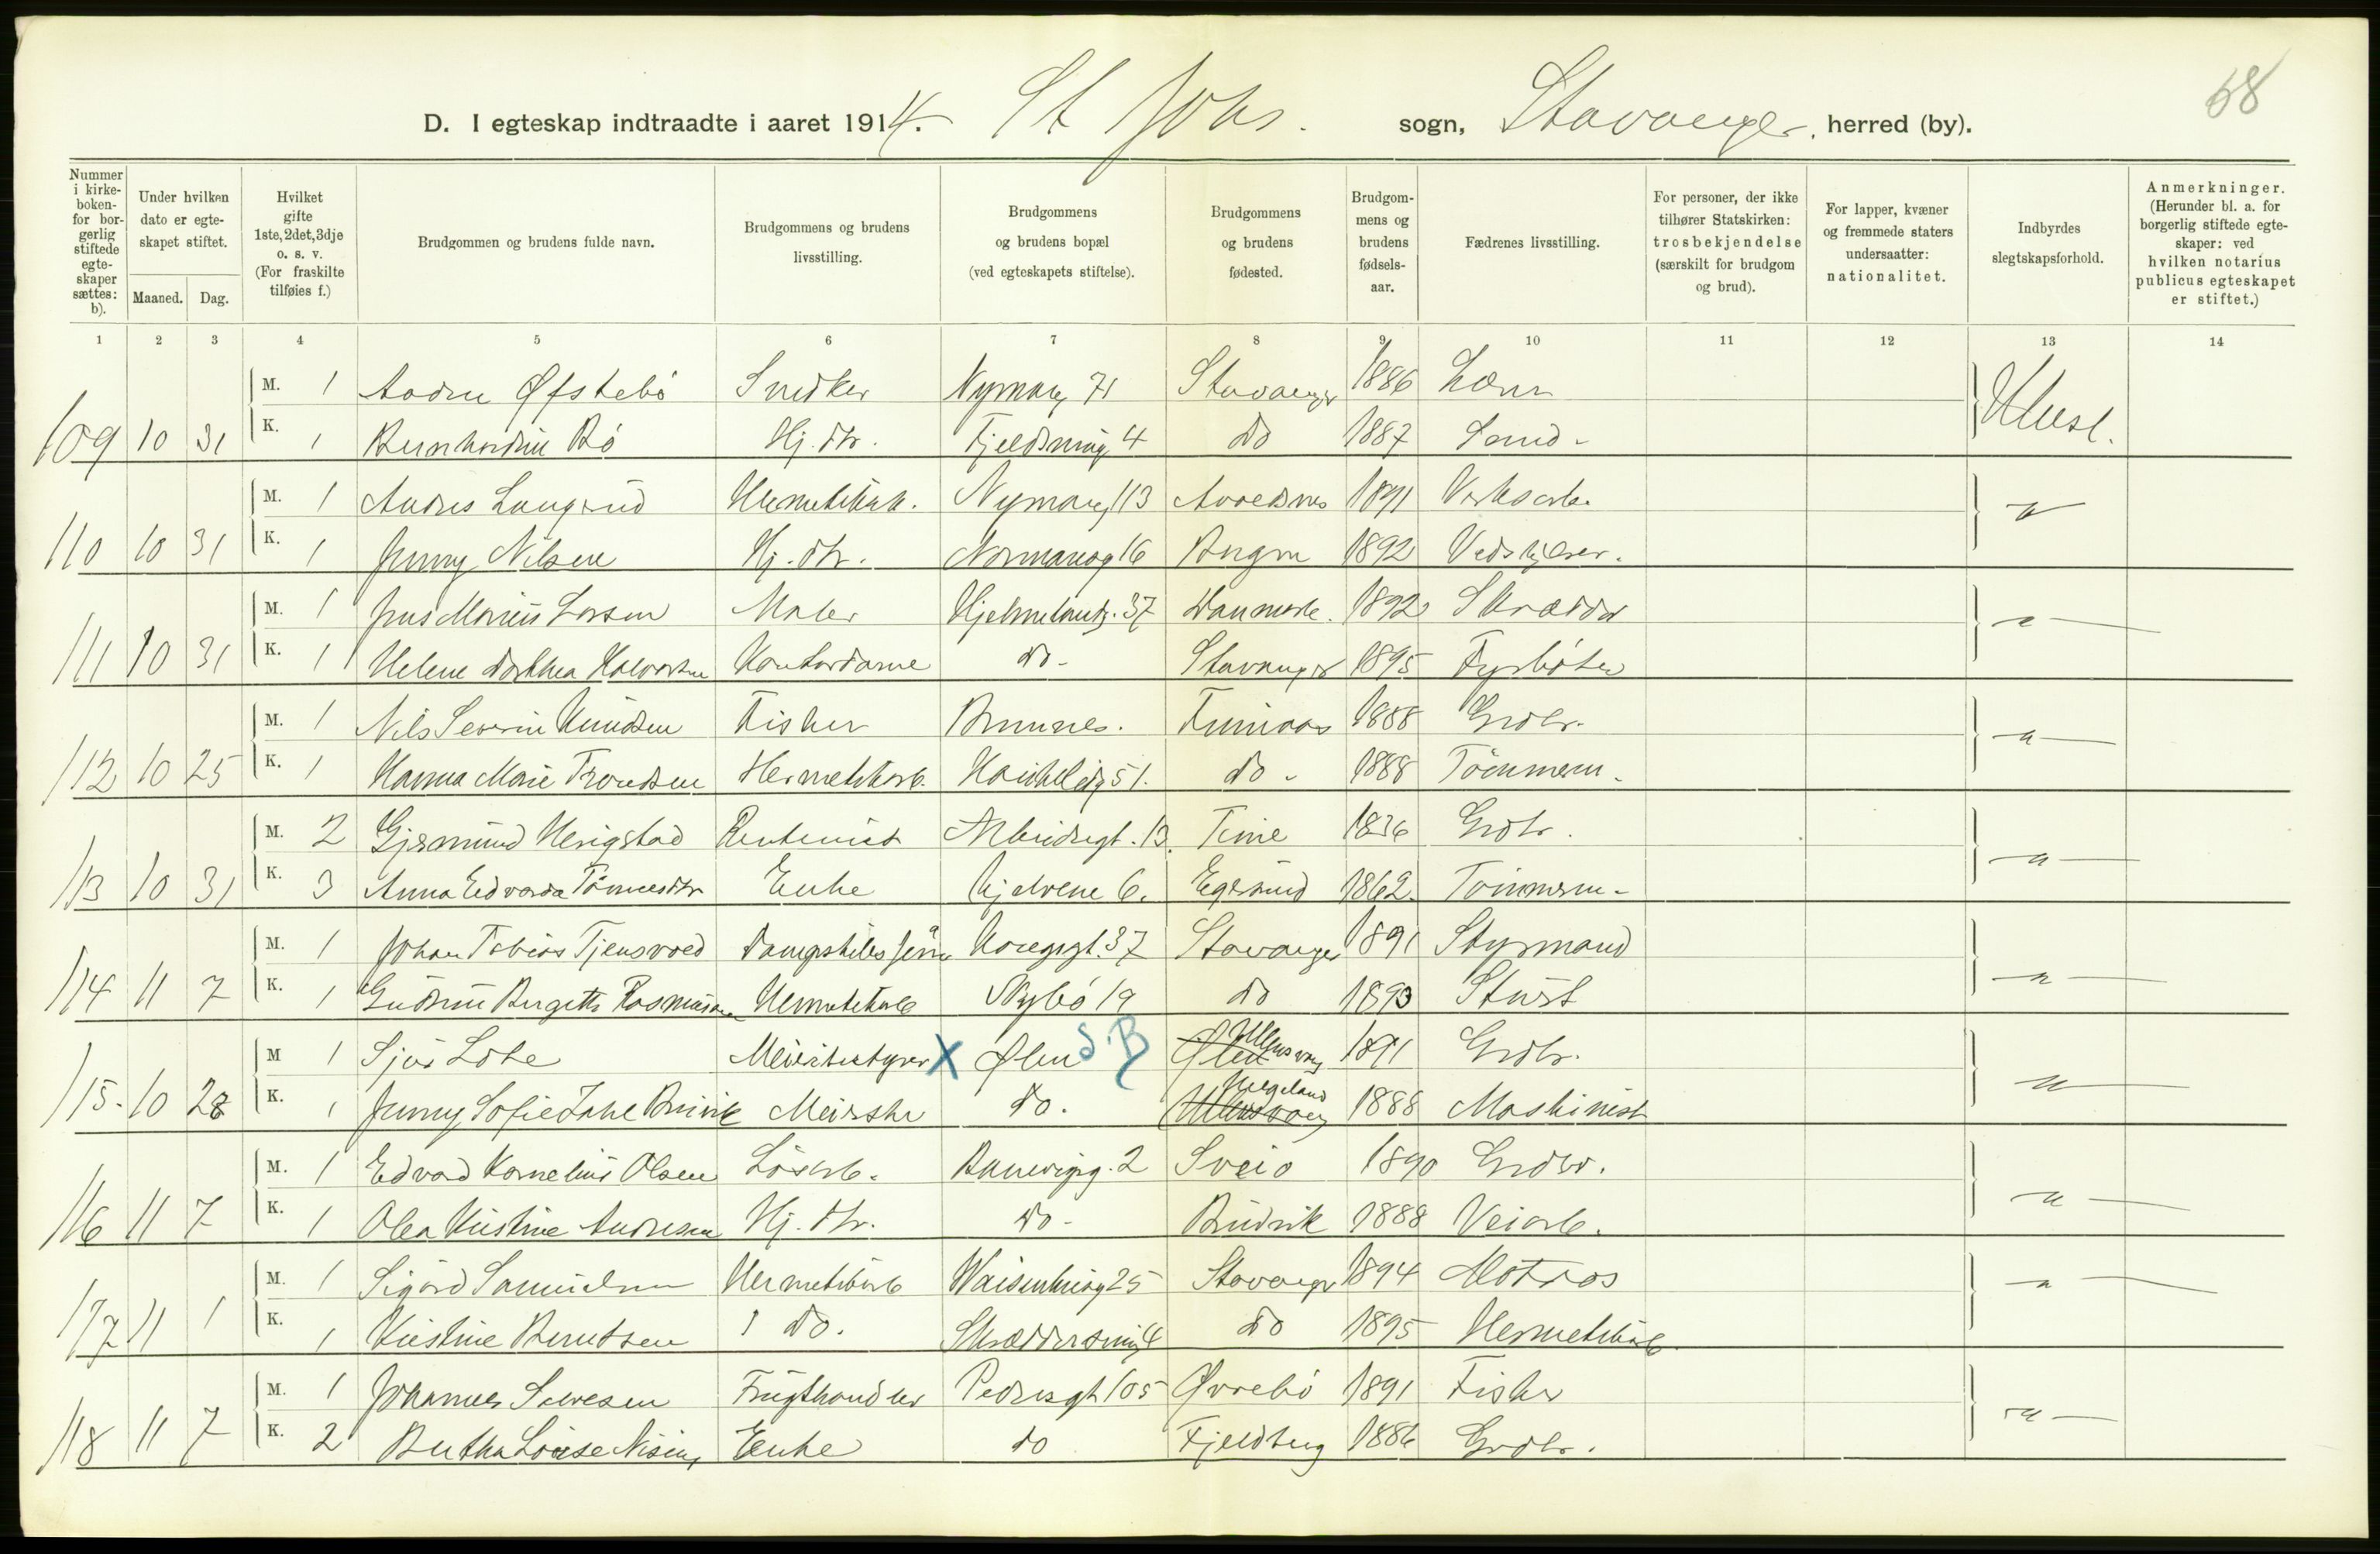 68
D. I egteskap indtraadte i aaret 1914. St Johs. sogn, Stavanger, herred (by).
Nummer i kirke-boken- for bor-gerlig stiftede egte-skaper sættes: b).
Under hvilken dato er egte-skapet stiftet.
Maaned. Dag.
Hvilket gifte 1ste, 2det, 3dje o. s. v. (For fraskilte tilføies f.)
Brudgommen og brudens fulde navn.
Brudgommens og brudens livsstilling.
Brudgommens og brudens bopæl (ved egteskapets stiftelse).
Brudgommens og brudens fødested.
Brudgom-mens og brudens fødsels-aar.
Fædrenes livsstilling.
For personer, der ikke tilhører Statskirken: trosbekjendelse (særskilt for brudgom og brud).
For lapper, kvæner og fremmede staters undersaatter: nationalitet.
Indbyrdes slegtskapsforhold.
Anmerkninger. (Herunder bl. a. for borgerlig stiftede egte-skaper: ved hvilken notarius publicus egteskapet er stiftet.)
1 2 3 4 5 6 7 8 9 10 11 12 13 14
M. 1 Øfstebö Snidker Nymarg 71 Stavanger 1886
109 10 31 K. 1 Bernhardine Bö Hj. dtr. Fjeldsmug 4 do 1887 Ubesl.
M. 1 Andres Langrud Hermetikarb. Nymarg 113 Avaldsnes 1891
110 10 31 K. 1 Jenny Nilsen Hj. dtr. Normansg 16 1892
M. 1 Jens Marius Larsen Maler Hjelmelandsg. 37 Danmark. 1892 Skrædder
111 10 31 K. 1 Helene Dorthea Halvorsen Kontordame do- Stavanger 1895 Fyrböter
M. 1 Nils Severin Knudsen Fisker 1888 Grdbr.
112 10 25 K. 1 Hanna Marie Trondsen Hermetikarb. 51. do - 1888 Tömmerm.
M. 2 Gjermund Herigstad Rentenist Arbeidergt. 13. Time 1836 Grdbr.
113 10 31 K. 3 Anna Edvarda Tönnesdtr Enke Kjelvene 6. Egersund 1862. Tömmerm-
M. 1 Johan Tobias Tjensvold 37 Stavanger 1891 Styrmand
114 11 7 K. 1 Gudrun Bergitte Rasmussen Hermetikarb Nybö 19 do 1893 Stuert
M 1 Sjur Lote Meieribestyrer X Ølen S.B Ølen Ullensvang 1891 Grdbr.
115. 10 28 K. 1 Jenny Sofie Meierske do. Ullensvang Helgeland 1888 Maskinist
M. 1 Edvard Kornelius Olsen Lösarb. Banevigsg. 2 Sveio 1890 Grdbr.
116 11 7 K. 1 Olea Kristine Andresen Hj. dtr. do - 1888 Veiarb.
M. 1 Sigurd Samuelsen Hermetikarb Waisenhusg 25 Stavanger 1894 Matros
117 11 1 K. 1 Kristine Berntsen do. Skræddersmug 4 do 1895 Hermetikarb.
M. 1 Johannes Salvesen Frugthandler Pedersgt 105 Øvrebö 1891 Fisker
118 11 7 K. 2 Bertha Lovise Enke do Fjeldberg 1886 Grdbr.